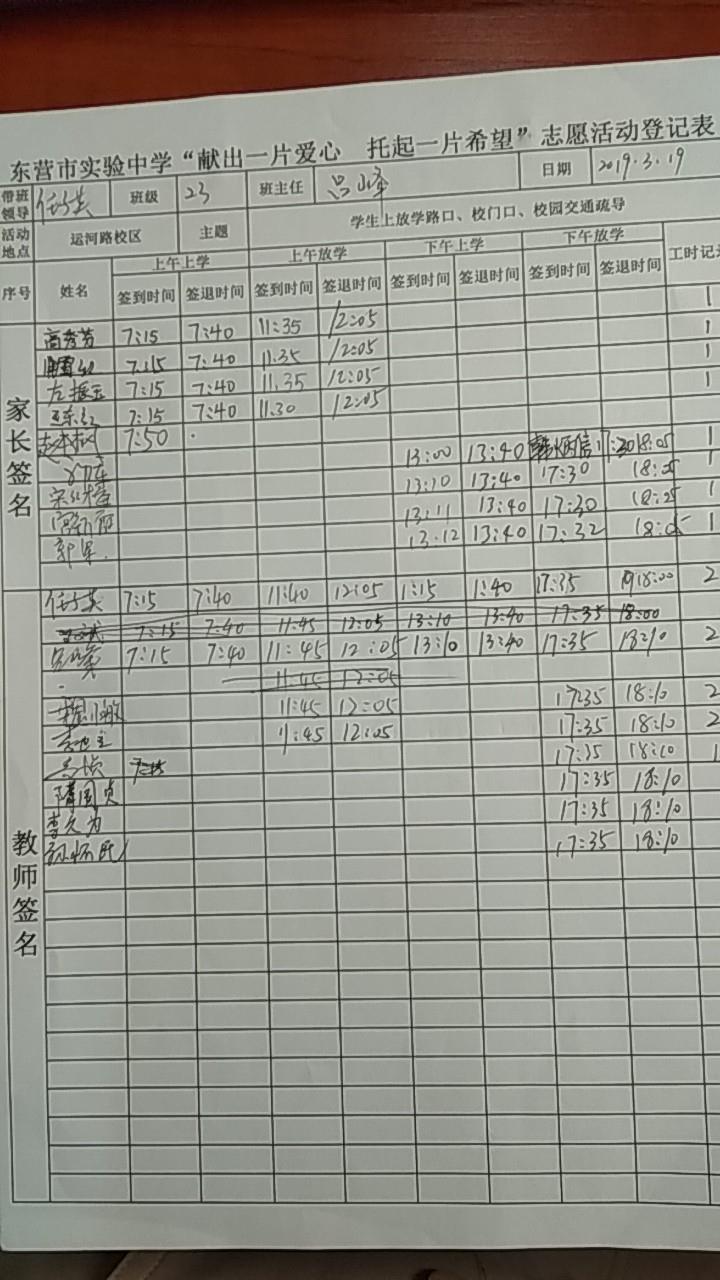 东营市实验中学“献出一片爱心 托起一片希望”志愿活动登记表
带班领导 班级 23 班主任 吕峰 日期 2019.3.19
活动地点 运河路校区 主题 学生上放学路口、校门口、校园交通疏导
序号 姓名 上午上学 上午放学 下午上学 下午放学 工时记
签到时间 签退时间 签到时间 签退时间 签到时间 签退时间 签到时间 签退时间
家长签名
高秀芳 7:15 7:40 11:35 12:05 1
7:15 7:40 11.35 12:05 1
左振玉 7:15 7:40 11.35 12:05 1
7:15 7:40 11:30 12:05 1
7:50
13:00 13:40 17:30 18:05 1
13:10 13:40 17:30 18:05 1
13:11 13:40 17:30 18:25 1
郭果. 13:12 13:40 17:32 18:05 1
教师签名
7:15 7:40 11:40 12:05 1:15 1:40 17:35 18:00 2
7:15 7:40 11:45 12:05 13:10 13:40 17:35 18:00
7:15 7:40 11:45 12:05 13:10 13:40 17:35 18:10 2
11:45 12:05
11:45 12:05 17:35 18:10 2
11:45 12:05 17:35 18:10 2
17:35 18:10 1
隋国贞 17:35 18:10
李久为 17:35 18:10
17:35 18:10